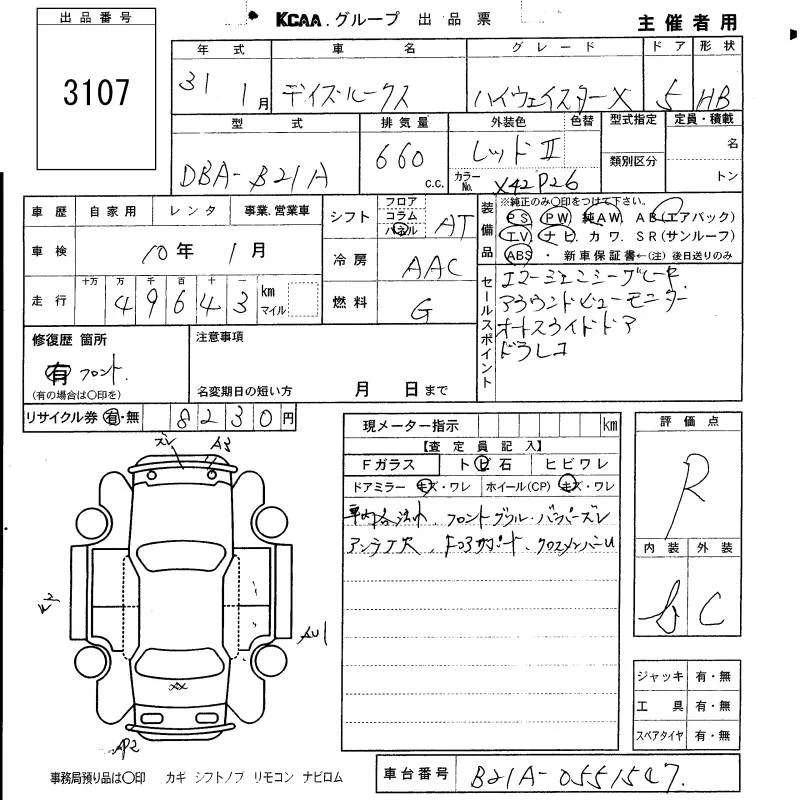 出品番号
3107
KCAA.グループ 出品票
主催者用
年式 車名 グレード ドア 形状
31 1月 デイズルークス ハイウェイスターX 5 HB
型式 排気量 外装色 色替 型式指定 定員・積載
DBA-B21A 660 c.c. レッドⅡ 名
カラーNo. X42P26 類別区分 トン
車歴 自家用 レンタ 事業.営業車
車検 10年 1月
走行 十万 万 千 百 十 一
4 9 6 4 3 km マイル
シフト フロア コラム パネル AT
冷房 AAC
燃料 G
装備品 ※純正のみ○印をつけて下さい。
PS PW 純AW. AB(エアバック)
TV ナビ カワ. SR(サンルーフ)
ABS ・ 新車保証書←(注)後日送りのみ
セールスポイント
エマージェンシーブレーキ
アラウンドビューモニター
オートスライドドア
ドラレコ
修復歴 箇所
有 フロント.
(有の場合は○印を)
注意事項
名変期日の短い方 月 日まで
リサイクル券 有・無 8230円
現メーター指示 km
【査定員記入】
Fガラス トビ石 ヒビワレ
ドアミラー キズ・ワレ ホイール(CP) キズ・ワレ
フロントグリル・バンパーズレ
アンテナ欠、コアサポート、クロスメンバーU
評価点
R
内装 外装
C
ジャッキ 有・無
工具 有・無
スペアタイヤ 有・無
ズレ A3
AU1
AX
AP2
事務局預り品は○印 カギ シフトノブ リモコン ナビロム
車台番号 B21A-0551527.